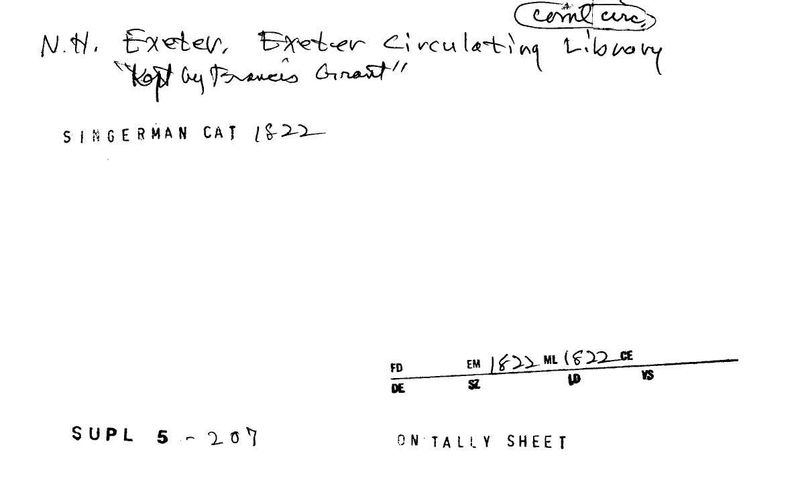 coml circ.
N.H. Exeter. Exeter Circulating Library
"Kept by Francis Grant"
SINGERMAN CAT 1822
FD EM 1822 ML 1822 CE
DE SZ LD YS
SUPL 5 - 207
ON TALLY SHEET